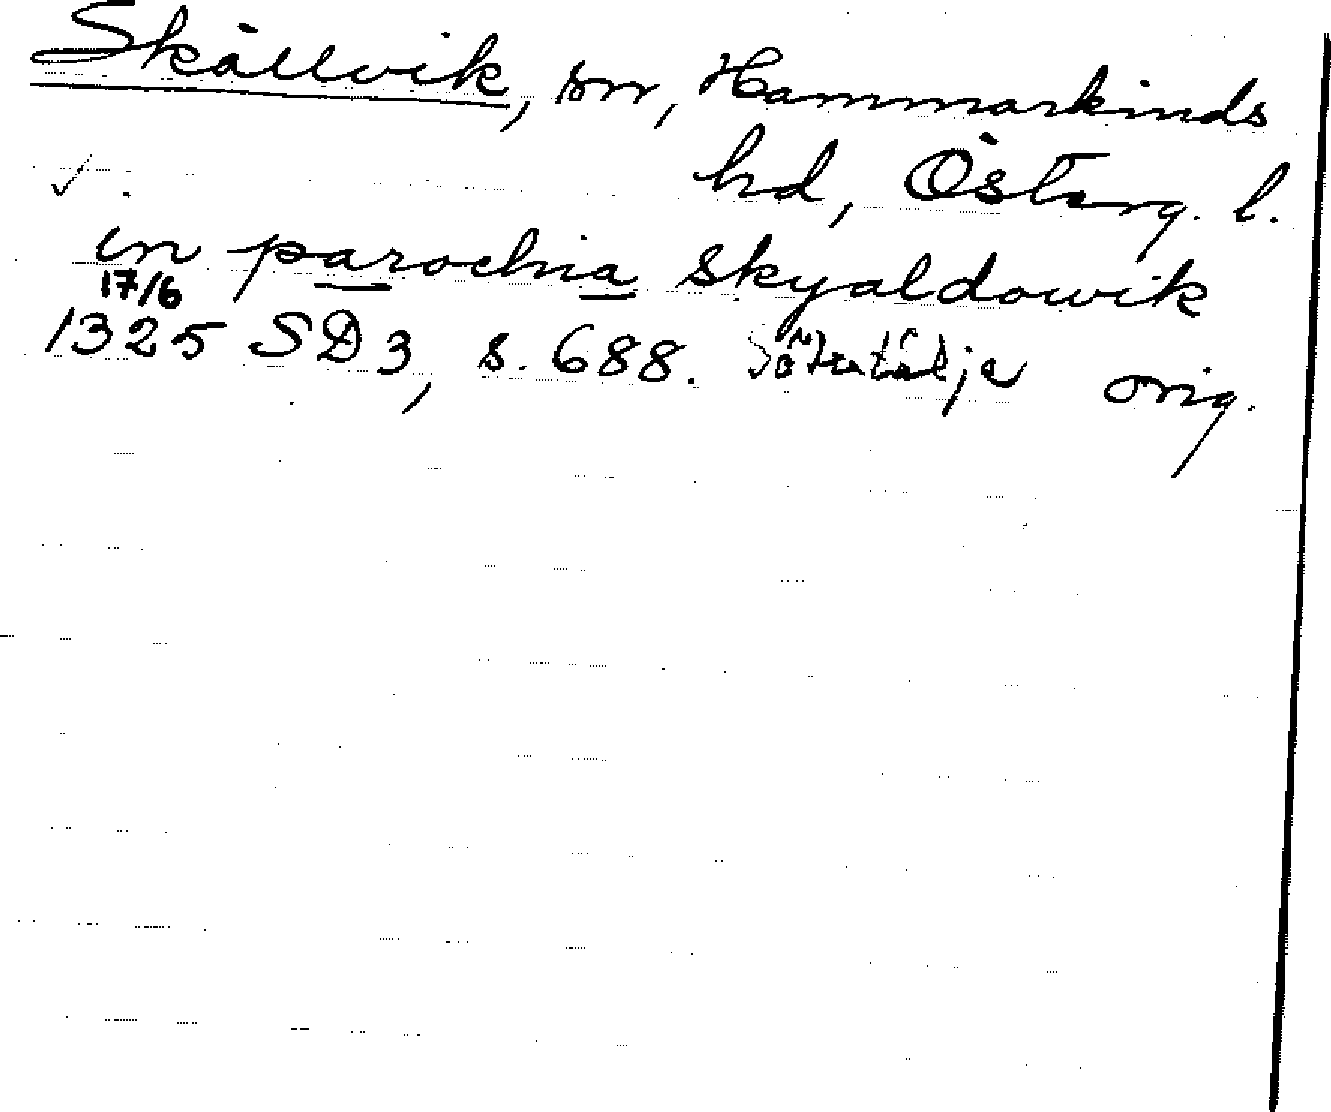 Skällvik, sn, Hammarkinds
hd, Österg. l.
in parochia Skyaldowik
17/6
1325 SD 3, s. 688. Södertälje orig.